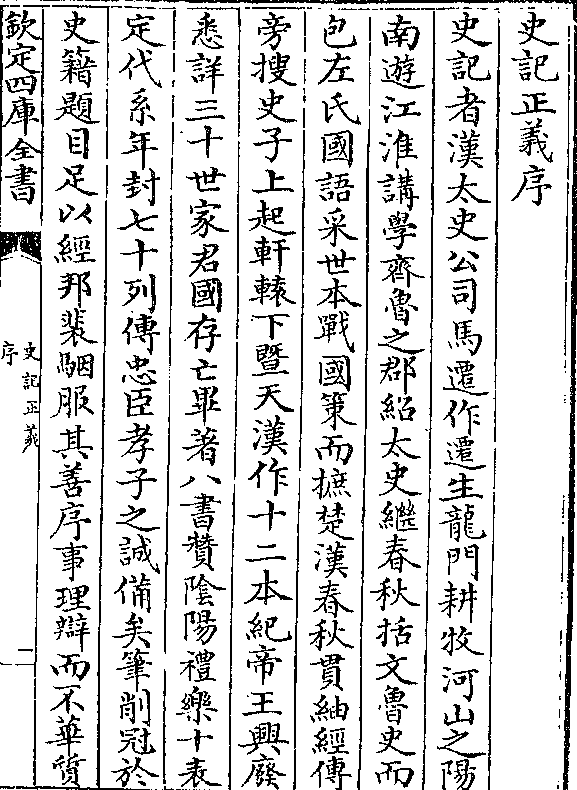 史記正義序
史記者漢太史公司馬遷作遷生龍門耕牧河山之陽
南遊江淮講學齊魯之郡紹太史繼春秋括文魯史而
包左氏國語采世本戰國策而摭楚漢春秋貫紬經傳
旁搜史子上起軒轅下暨天漢作十二本紀帝王興廢
悉詳三十世家君國存亡畢著八書贊陰陽禮樂十表
定代系年封七十列傳忠臣孝子之誠備矣筆削冠於
史籍題目足以經邦裴駰服其善序事理辯而不華質
欽定四庫全書
史記正義
序
一